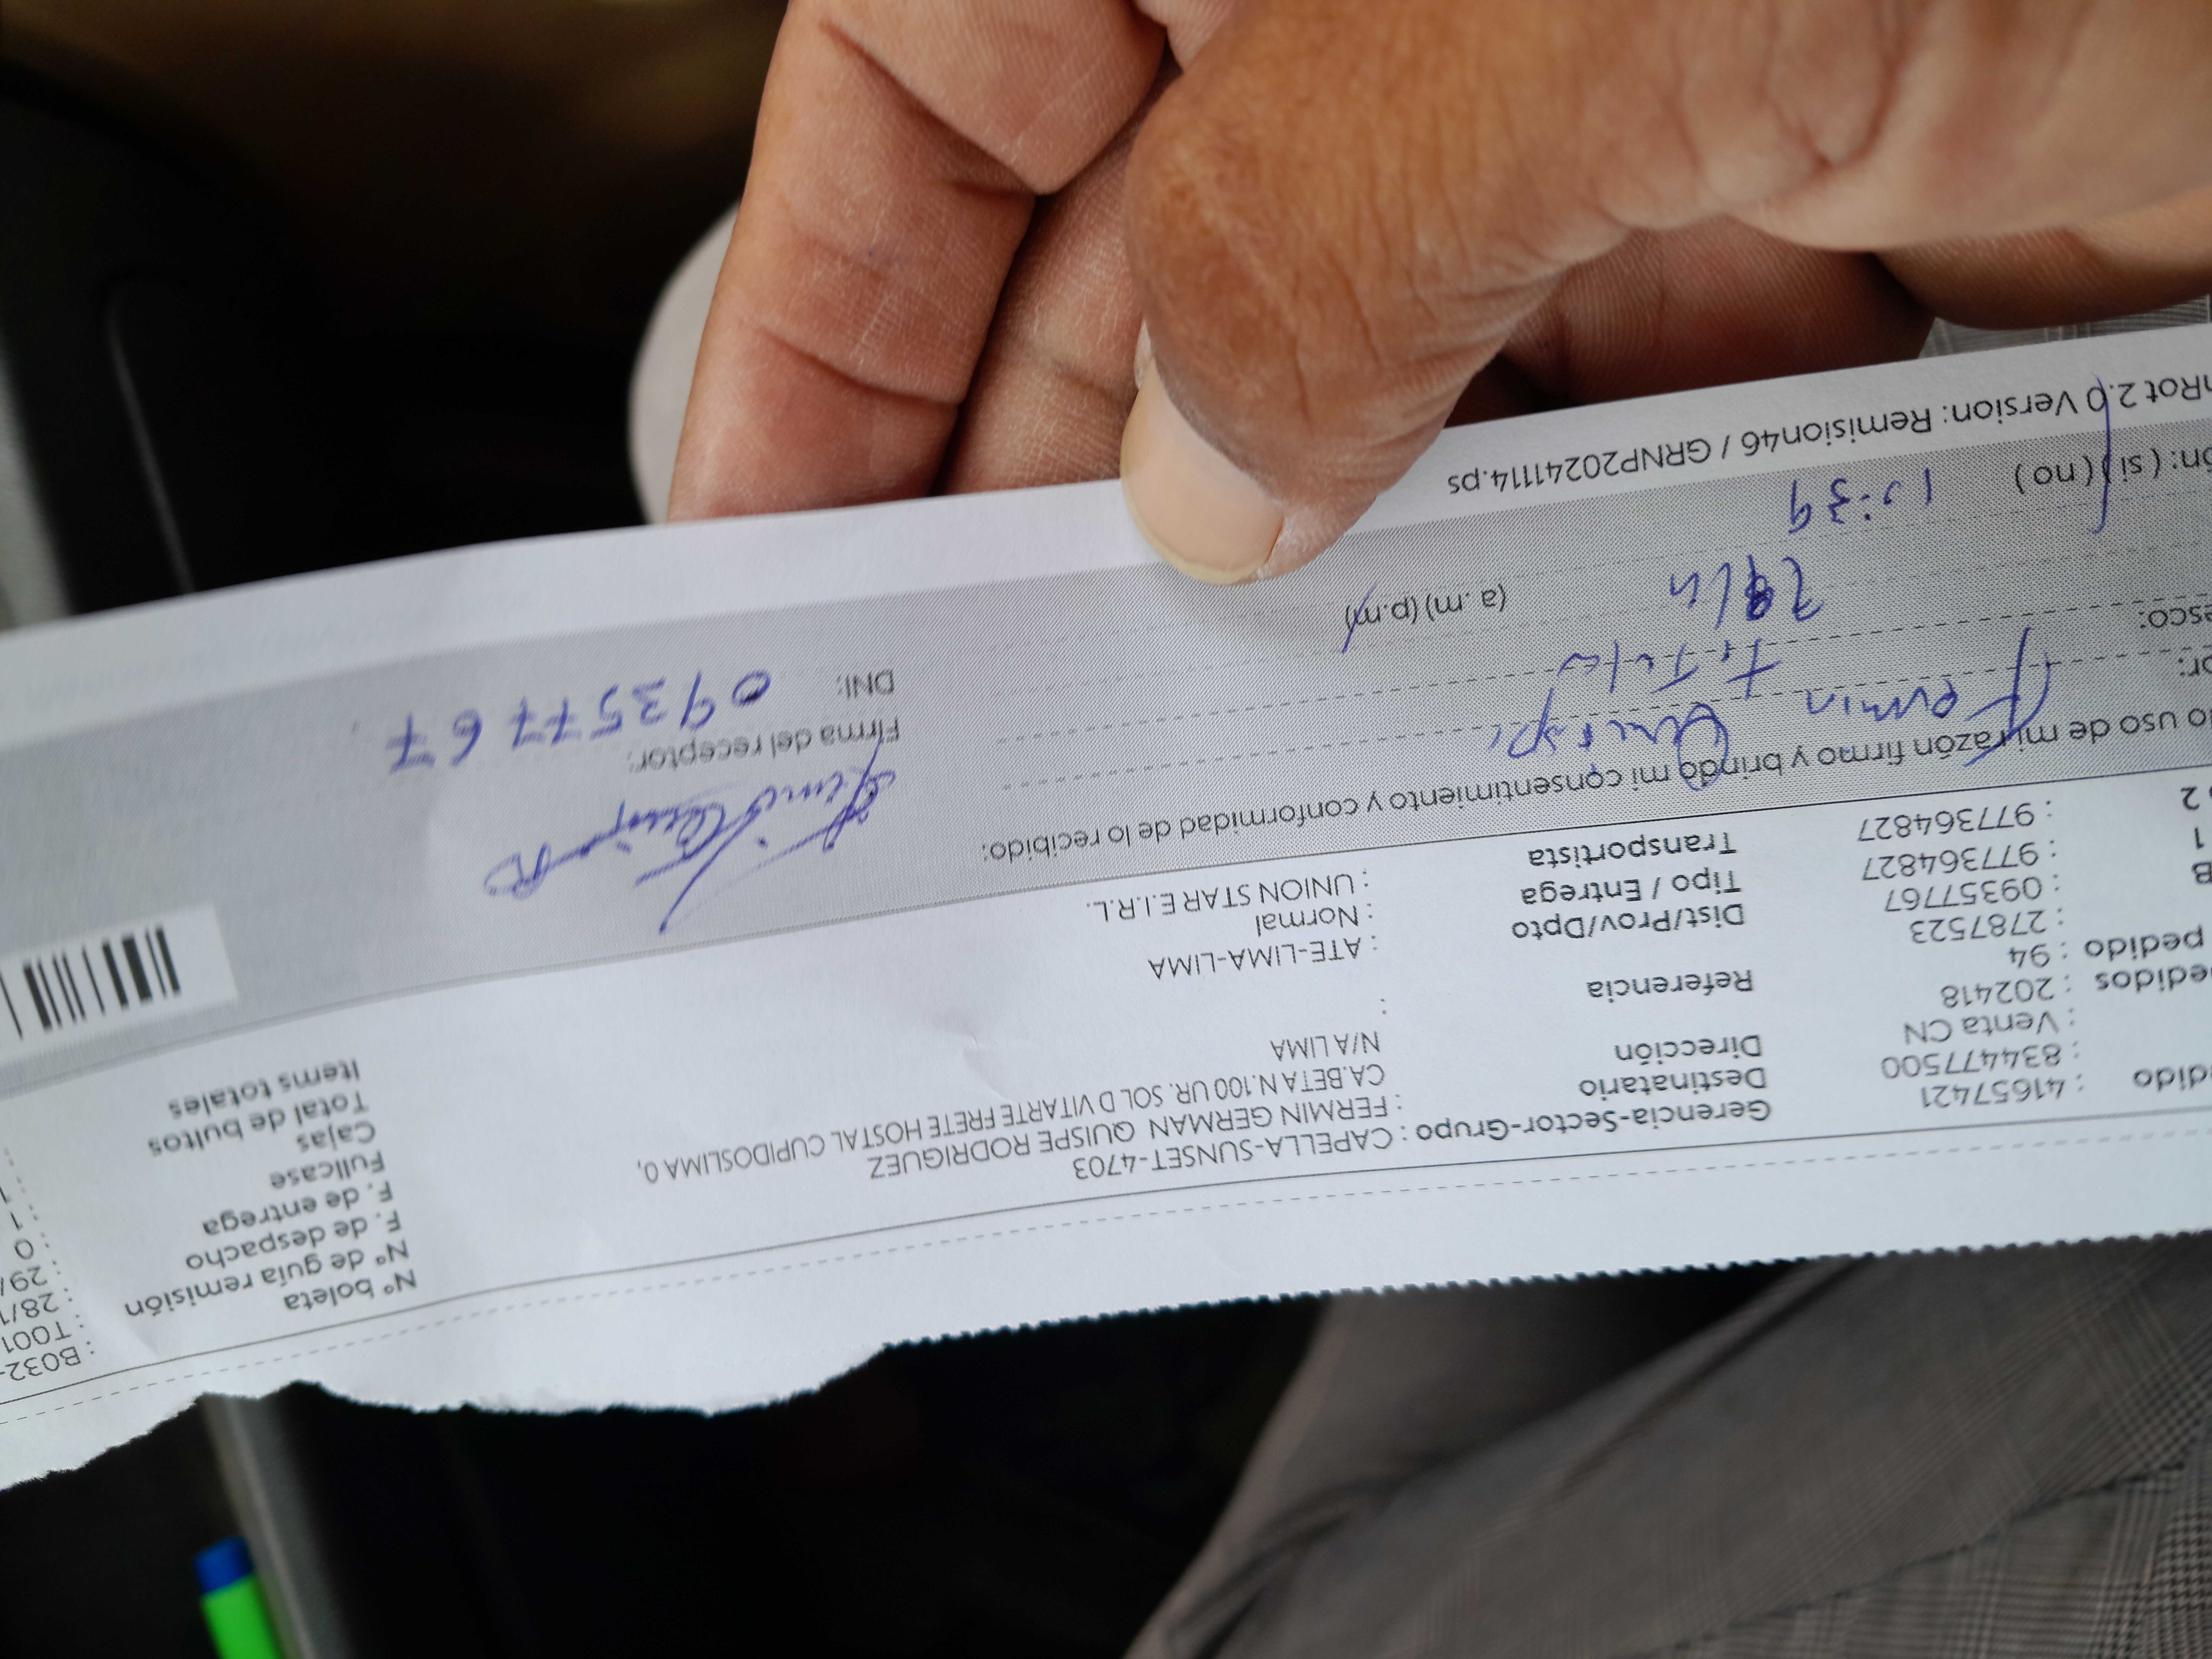 Nº boleta : B032-
Nº de guía remisión : T001
F. de despacho : 28/1
F. de entrega : 29/
Fullcase : 0
Cajas : 1
Total de bultos : 1
Items totales :
Gerencia-Sector-Grupo : CAPELLA-SUNSET-4703
Destinatario : FERMIN GERMAN QUISPE RODRIGUEZ
Dirección : CA.BETA N.100 UR. SOL D VITARTE FRETE HOSTAL CUPIDOSLIMA 0,
N/A LIMA
Referencia :
Dist/Prov/Dpto : ATE-LIMA-LIMA
Tipo / Entrega : Normal
Transportista : UNION STAR E.I.R.L.
dido : 41657421
: 834477500
: Venta CN
edidos : 202418
pedido : 94
: 2787523
B : 09357767
1 : 977364827
2 : 977364827
o uso de mi razón firmo y brindo mi consentimiento y conformidad de lo recibido:
or: Fermin Quispe
esco: Titular
(a.m) (p.m)
ón: ( si ) ( no )
Rot 2.0 Version: Remision46 / GRNP20241114.ps
Firma del receptor:
DNI: 09357767